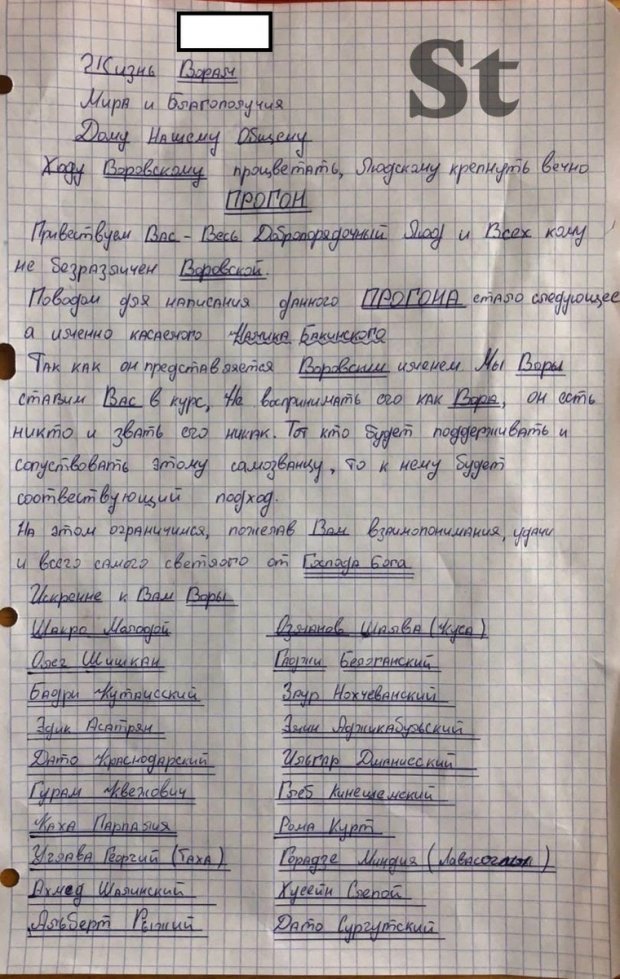 St
Жизнь Ворам
Мира и Благополучия
Дому Нашему Общему
Ходу Воровскому процветать, Людскому крепнуть вечно
ПРОГОН
Приветствуем Вас - Весь Добропорядочный Люд и Всех кому
не безразличен Воровской.
Поводом для написания данного ПРОГОНА стало следующее
а именно касаемого Намика Бакинского
Так как он представляется Воровским именем Мы Воры
ставим Вас в курс, Не воспринимать его как Вора, он есть
никто и звать его никак. Тот кто будет поддерживать и
сопуствовать этому самозванцу, то к нему будет
соотвествующий подход.
На этом ограничимся, пожелав Вам взаимопонимания, удачи
и всего самого светлого от Господа Бога
Искренне к Вам Воры
Шакро Молодой Озманов Шалва (Куса)
Олег Шишкан Гаджи Белгганский
Бадри Кутаисский Заур Нохчеванский
Эдик Асатрян Элин Аджикабульский
Дато Краснодарский Ильгар Дманисский
Гурам Квежович Глеб Кинешемский
Каха Парпалия Рома Курт
Углава Георгий (Таха) Горадзе Миндия (
Ахмед Шалинский Хусейн Слепой
Альберт Рыжий Дато Сургутский